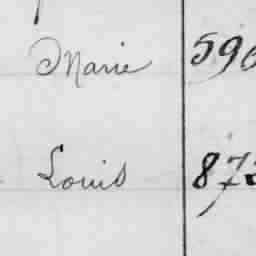 Marie 590
Louis 872